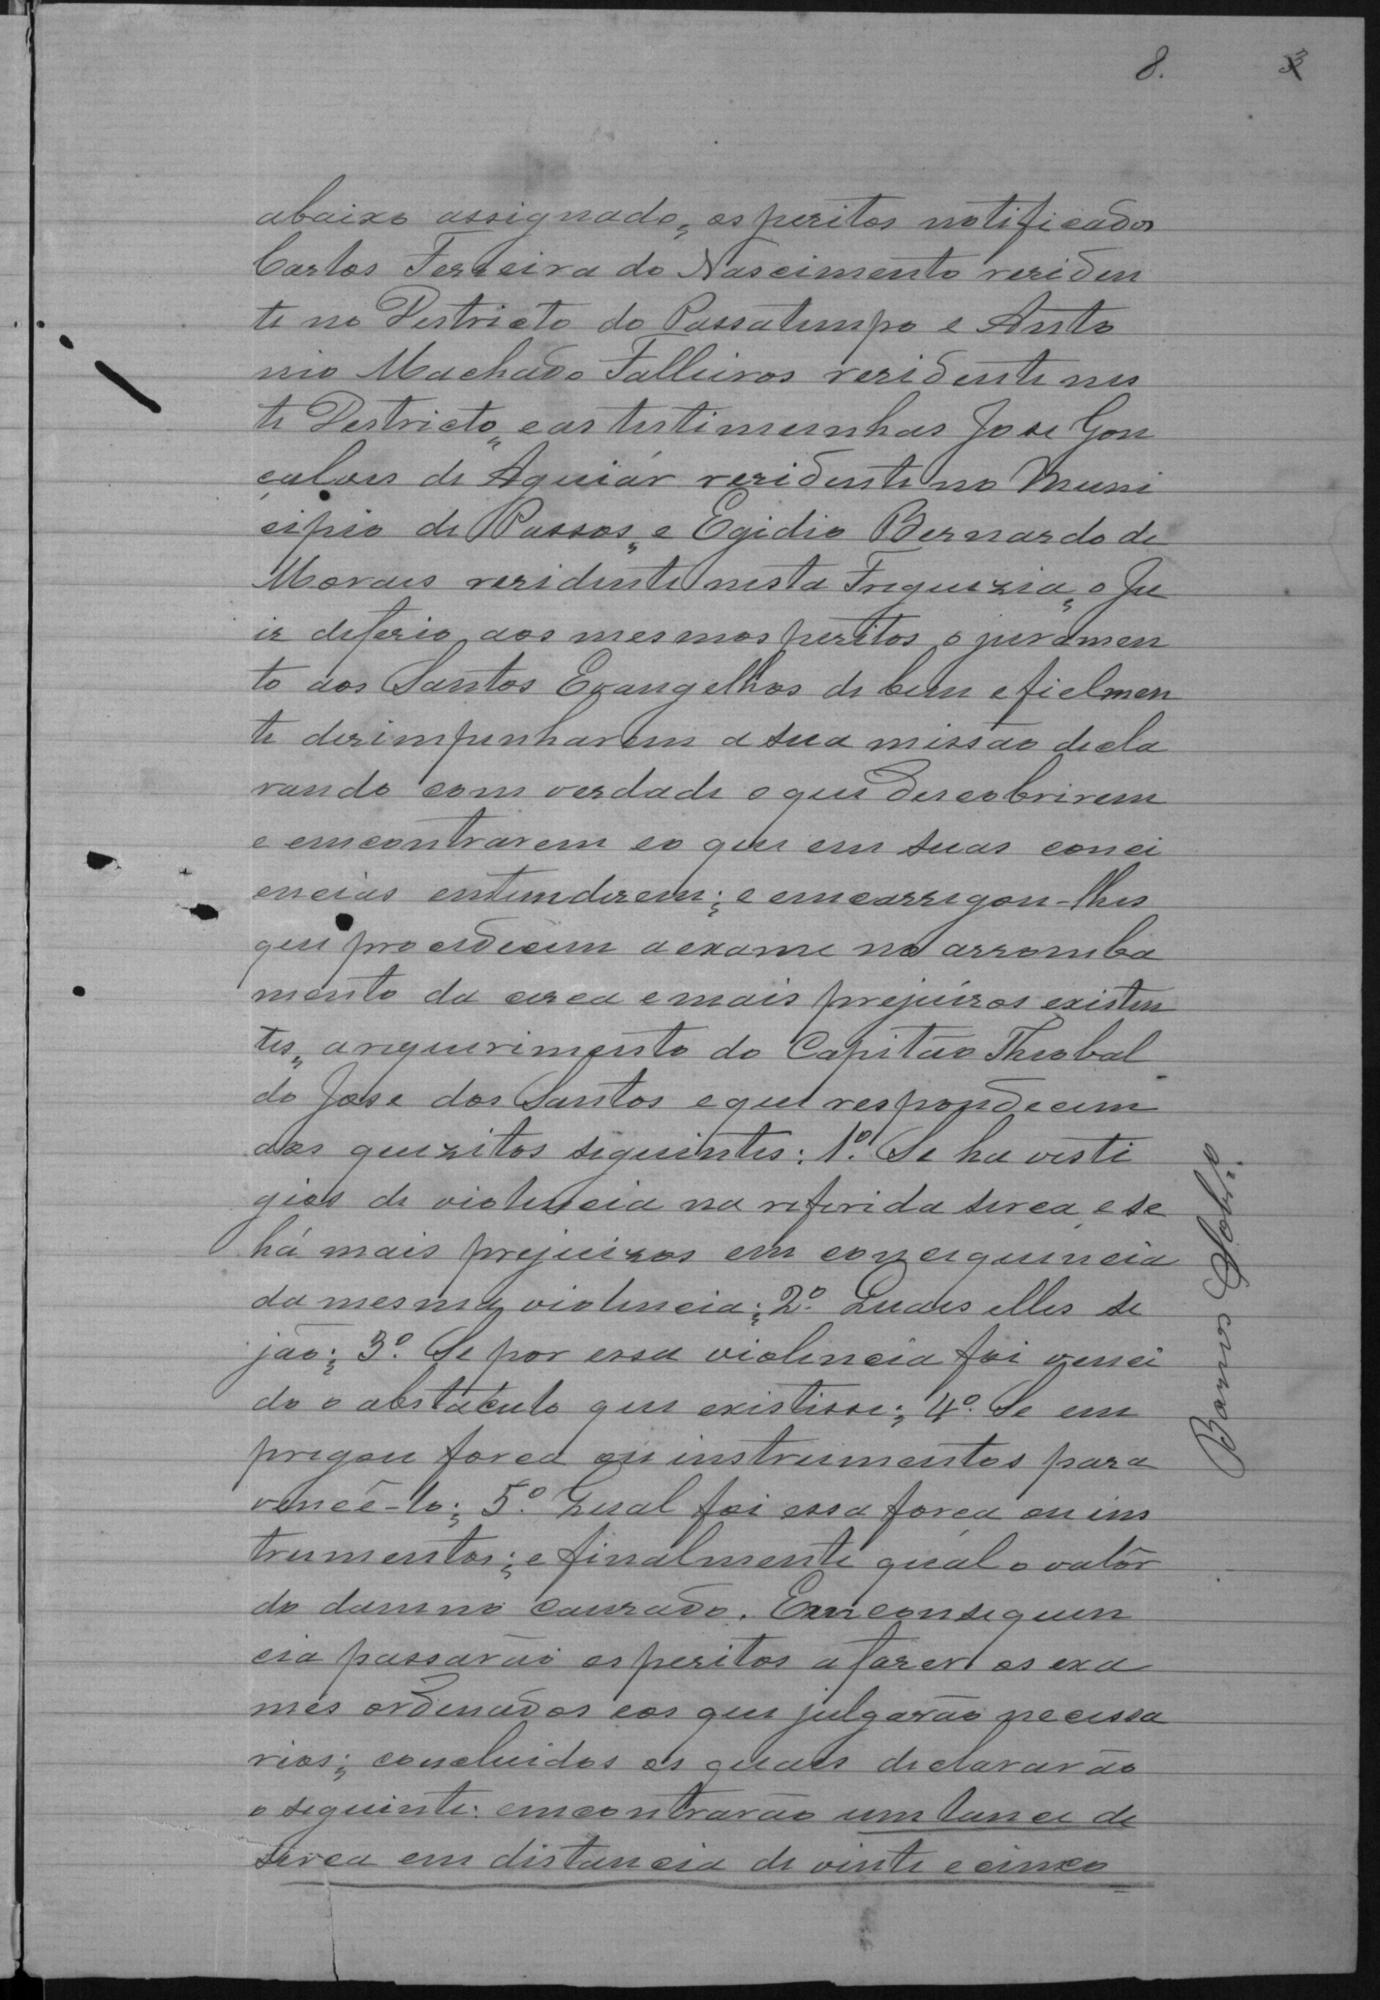 8. 3
abaixo assignado, os peritos notificados
Carlos Ferreira do Nascimento reziden
te no Destricto do Passatempo e Anto
nio Machado Falleiros rezidente nes
te Destricto, e as testimunhas Jose Gon
çalves de Aguiár rezidente no Muni
cipio de Passos, e Egidio Bernardo de
Moraes rezidente nesta Freguezia, o Ju
iz deferio aos mesmos peritos o juramen
to aos Santos Evangelhos de bem e fielmen
te dezimpenharem a sua missão decla
rando com verdade o que descobrirem
e emcontrarem e o que em suas conci
encias entenderem; e emcarregou-lhes
que procedecem a exame no arromba
mento da cerca e mais prejuizos existen
tes, a requerimento do Capitão Theobal
do Jose dos Santos e que respondecem
aos quezitos seguintes: 1º. Se ha vesti
gios de violencia na referida serca, e se
há mais prejuizos em conzequencia
da mesma violencia; 2º. Quaes elles se
jão; 3º. Se por essa violencia foi venci
do o abstáculo que existisse; 4º. Se em
pregou força ou instrumentos para
vencê-lo; 5º. Qual foi essa força ou ins
trumentos; e finalmente qual o valôr
do damno cauzado. Em consequen
cia passarão os peritos a fazer os exa
mes ordenados e os que julgarão necessa
rios; concluidos os quaes declararão
o seguinte: emcontrarão um lance de
serca em distancia de vinte e cinco
Barros Sobr.º